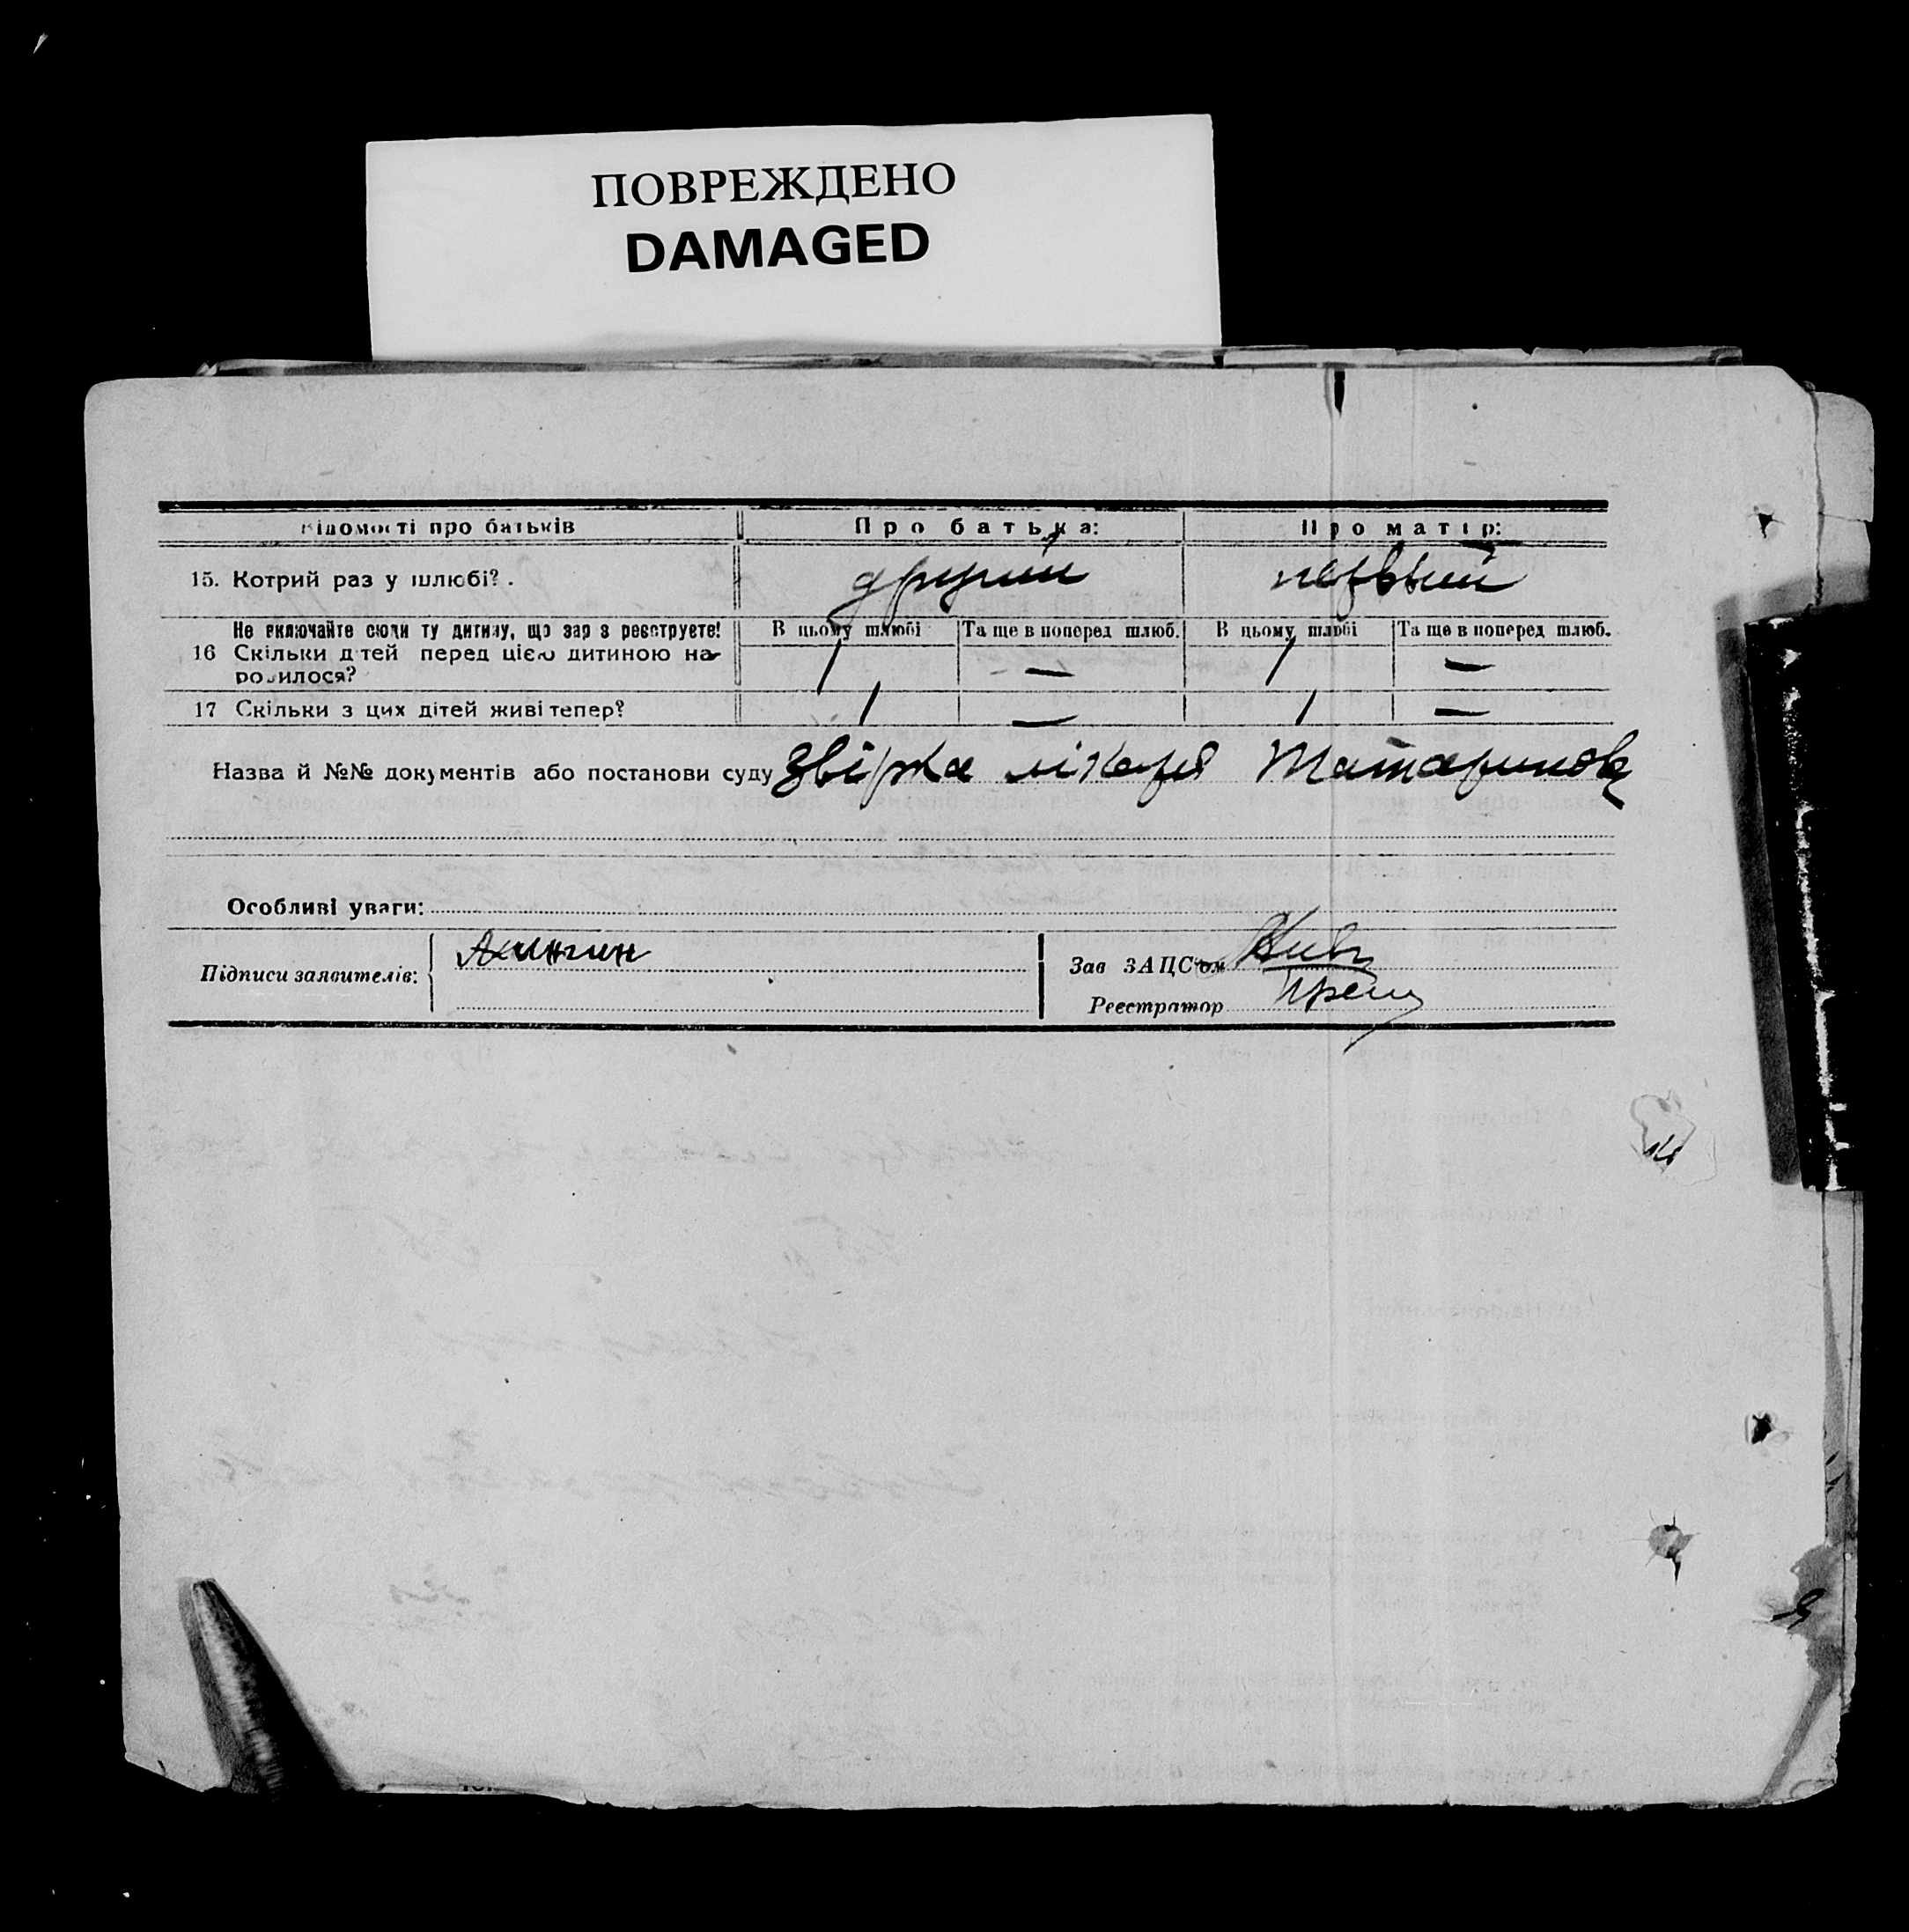 ПОВРЕЖДЕНО
DAMAGED
Відомості про батьків Про батька: Про матір:
15. Котрий раз у шлюбі? . другий первый
Не включайте сюди ту дитину, що зараз реєструєте! В цьому шлюбі Та ще в поперед шлюб. В цьому шлюбі Та ще в поперед шлюб.
16 Скільки дітей перед цією дитиною на-
родилося? 1 — 1 —
17 Скільки з цих дітей живі тепер? 1 — 1 —
Назва й №№ документів або постанови суду лікаря Татаринова
Особливі уваги:
Підписи заявителів: Зав ЗАЦСом
Реєстратор